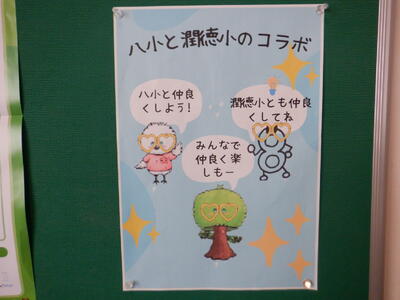 八小と潤徳小のコラボ
八小と仲良
くしよう!
潤徳小とも仲良
くしてね
みんなで
仲良く楽
しもー